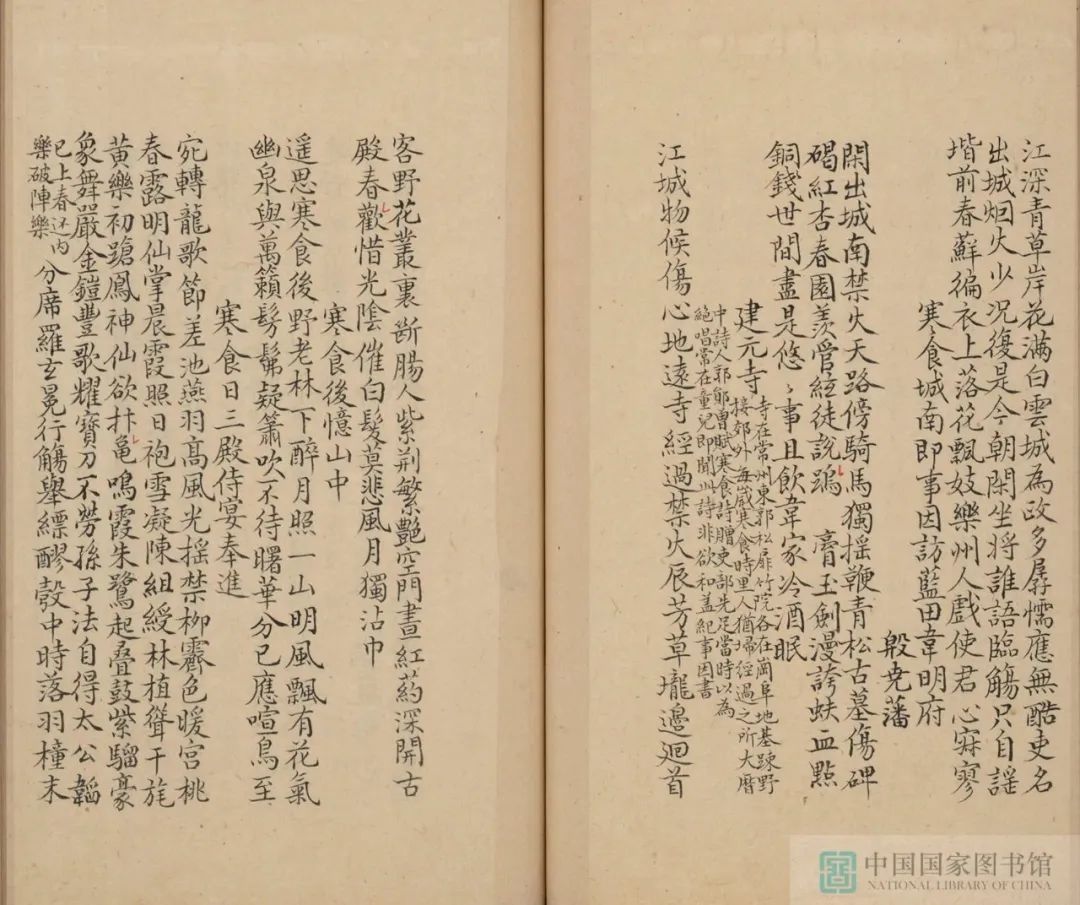 江深青草岸花滿白雲城為政多孱懦應無酷吏名
出城烟火少況復是今朝閑坐將誰語臨觴只自謡
堦前春蘇徧衣上落花飄妓樂州人戲使君心寂寥
寒食城南即事因訪藍田韋明府
殷尭藩
閑出城南禁火天路傍騎馬獨揺鞭青松古墓傷碑
碣紅杏春園羨管絃徒説鵶膏玉劍漫誇蚨血點
銅錢世間盡是悠〻事且飲韋家冷酒眠
建元寺
寺在常州東郭松扉竹院各在崗阜地基踈野
接郊外每歳寒食時里人猶掃經過之所大曆
中詩人郭鄖曽賦寒食詩贈吏部先足當時以為
絕唱常在童兒即聞此詩非欲和盖紀事因書
江城物候傷心地遠寺經過禁火辰芳草壠邊迴首
客野花叢裏斷腸人紫荆繁艷空門晝紅葯深開古
殿春歡惜光陰催白髮莫悲風月獨沾巾
寒食後憶山中
遥思寒食後野老林下醉月照一山明風飄有花氣
幽泉與萬籟髣髴疑簫吹不待曙華分已應喧鳥至
寒食日三殿侍宴奉進
宛轉龍歌節差池燕羽高風光揺禁柳霽色暖宫桃
春露明仙掌晨霞照日袍雪凝陳組綬林植聳干旄
黄樂初蹌鳳神仙欲抃亀鳴霞朱鷺起叠鼓紫騮豪
象舞嚴金鎧豐歌耀寶刀不勞孫子法自得太公韜
已上春还内
樂破陣樂
分席羅玄冕行觴舉縹醪彀中時落羽橦末
中国国家图书馆
NATIONAL LIBRARY OF CHINA